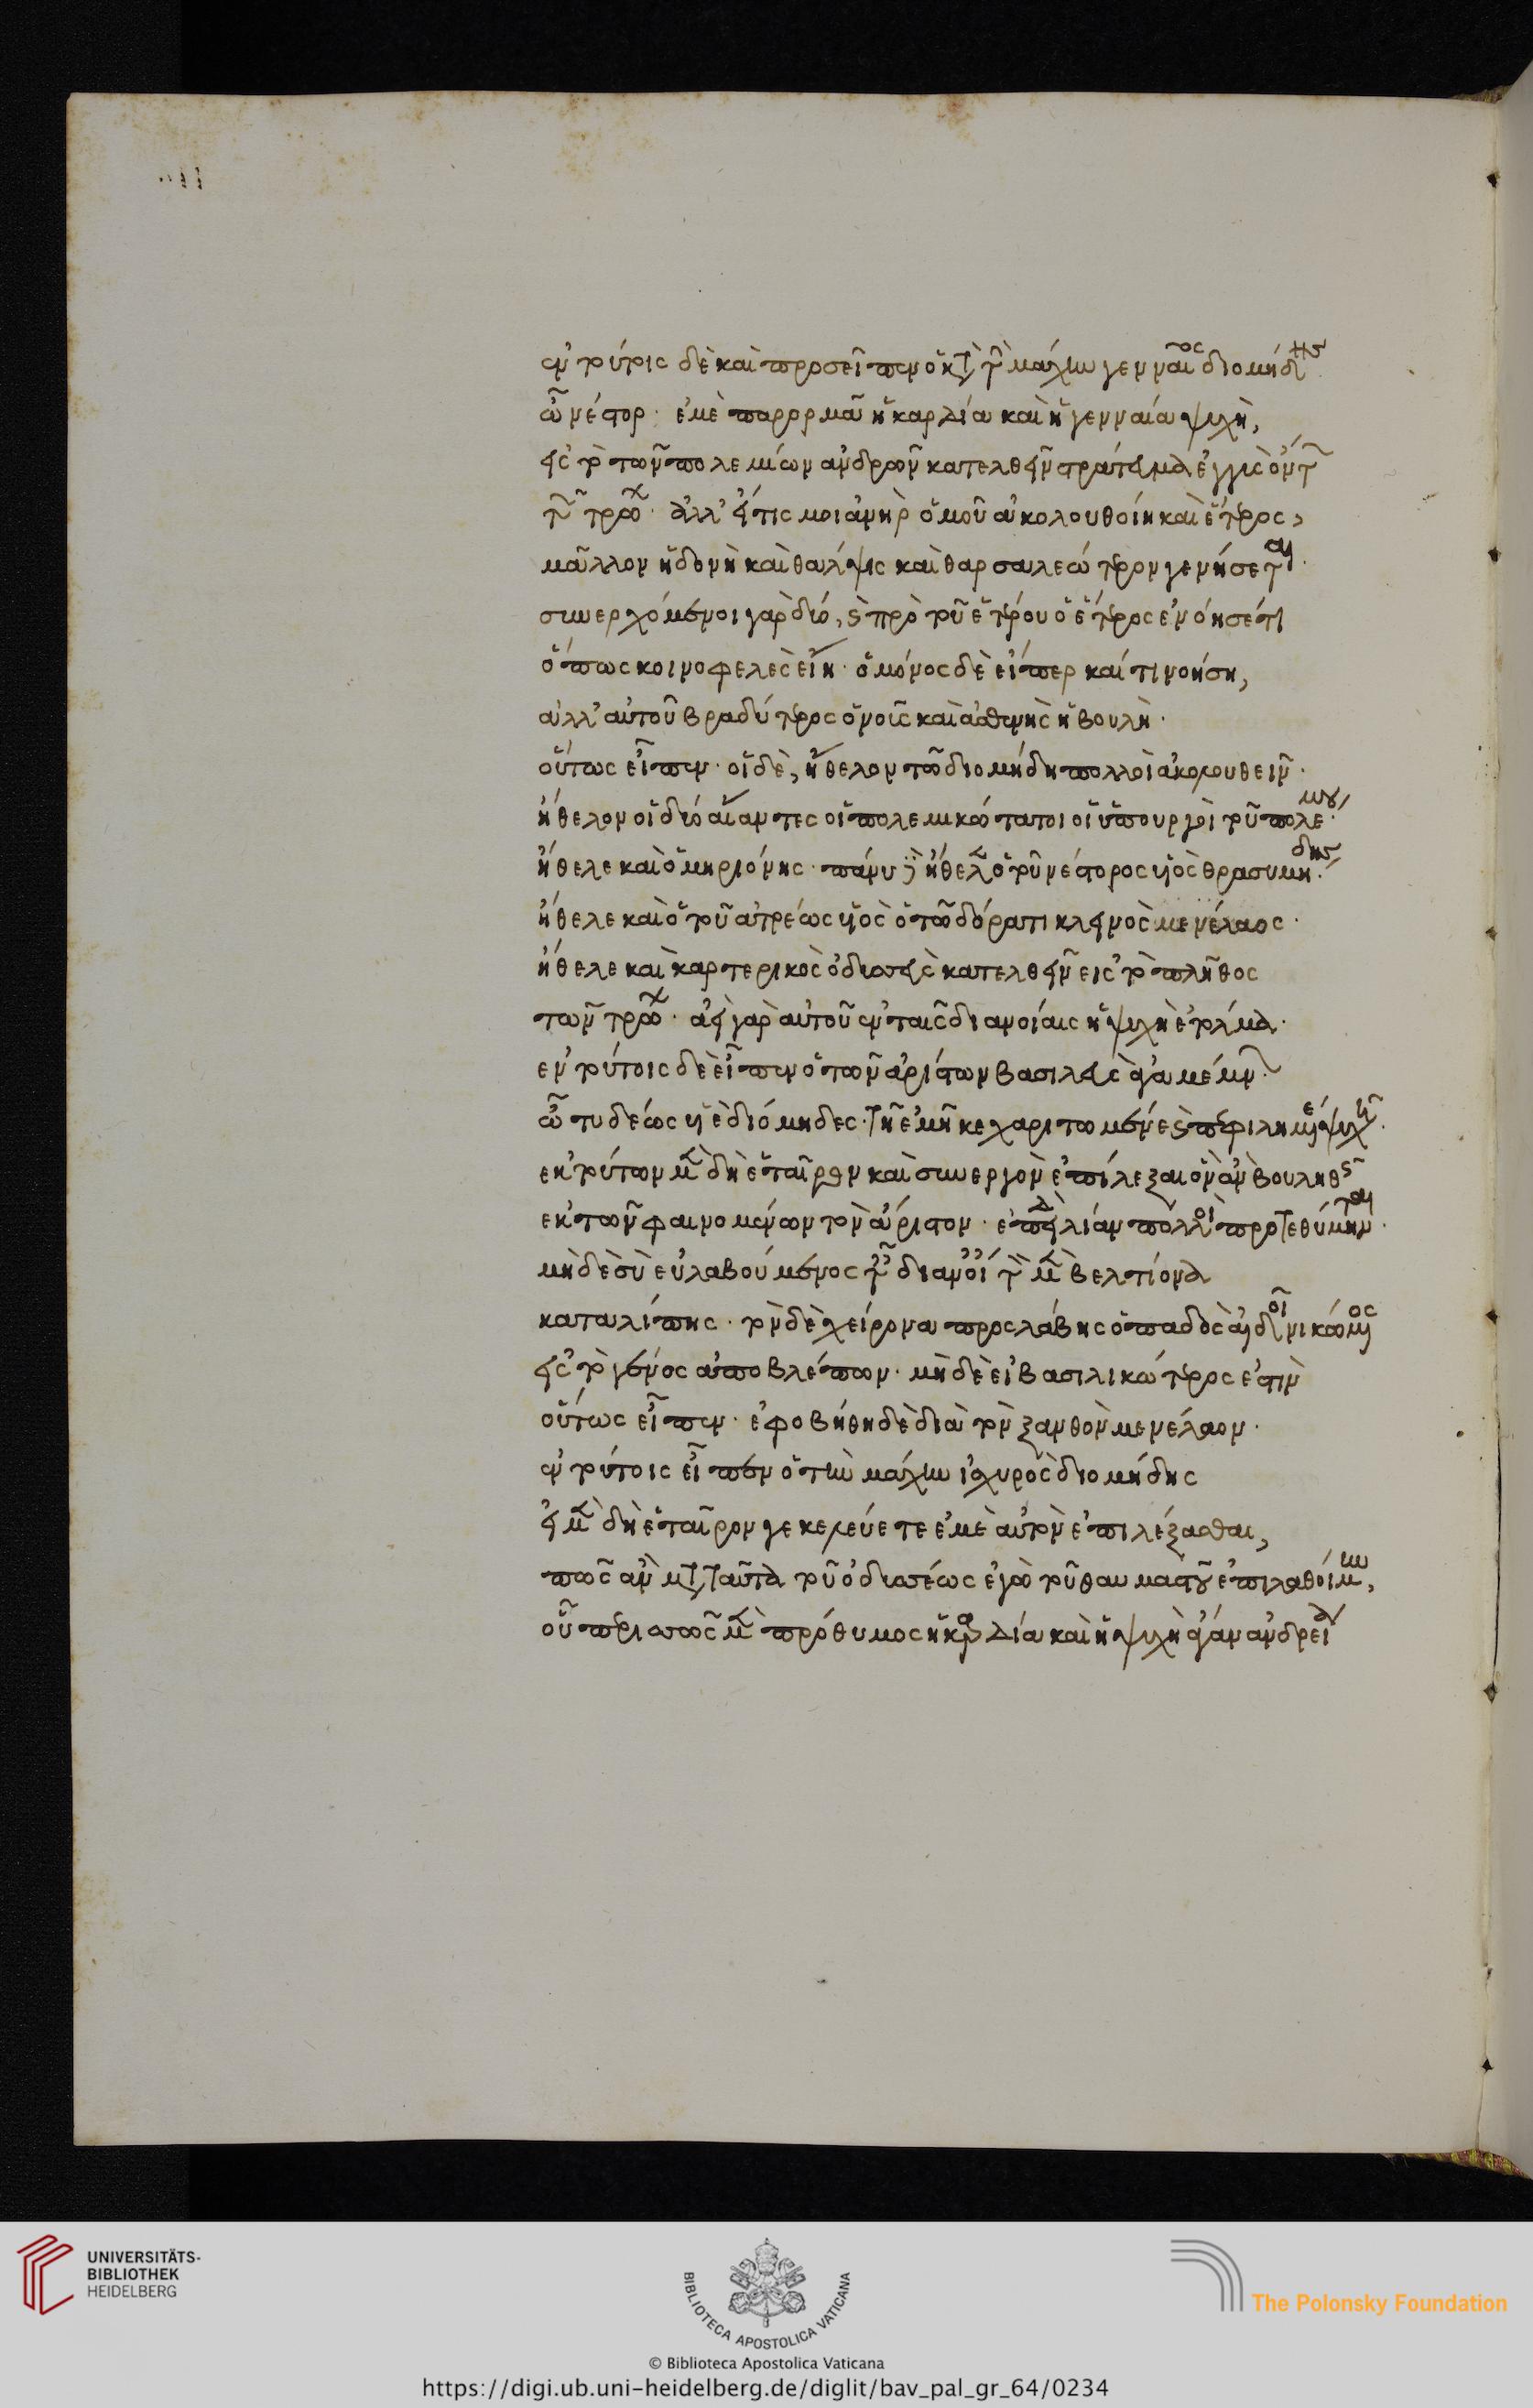 ἐν τούτοις δὲ καὶ προσεῖπεν ὁ κατὰ τὴν μάχην γενναῖος διομήδης
ὦ νέστορ· ἐμὲ παρορμᾶ ἡ καρδία καὶ ἡ γενναία ψυχὴ,
εἰς τὸ τῶν πολεμίων ἀνδρῶν κατελθεῖν στράτευμα ἐγγὺς ὄντων
τῶν τρώων· ἀλλ' εἴ τις μοι ἀνὴρ ὁμοῦ ἀκολουθοίη καὶ ἕτερος,
μᾶλλον ἡδονὴ καὶ θάλψις καὶ θαρσαλεώτερον γενήσεται·
συνερχόμενοι γὰρ δύο, καὶ πρὸ τοῦ ἑτέρου ὁ ἕτερος ἐνόησέ τι
ὅπως κοινοφελὲς εἴη· ὁ μόνος δὲ εἴπερ καί τι νοήση,
ἀλλ' αὐτοῦ βραδύτερος ὁ νοῦς καὶ ἀσθενὴς ἡ βουλὴ·
οὕτως εἶπεν· οἱ δὲ, ἤθελον τῶ διομήδη πολλοὶ ἀκολουθεῖν·
ἤθελον οἱ δύο αἴαντες οἱ πολεμικώτατοι οἱ ὑπουργοὶ τοῦ πολέμου·
ἤθελε καὶ ὁ μηριόνης· πάνυ δὲ ἤθελεν ὁ τοῦ νέστορος υἱὸς θρασυμήδης·
ἤθελε καὶ ὁ τοῦ ἀτρέως υἱὸς ὁ τῶ δόρατι κλεινὸς μενέλαος·
ἤθελε καὶ καρτερικὸς ὀδυσσεὺς κατελθεῖν εἰς τὸ πλῆθος
τῶν τρώων· ἀεὶ γὰρ αὐτοῦ ἐν ταῖς διανοίαις ἡ ψυχὴ ἐτόλμα·
ἐν τούτοις δὲ εἶπεν ὁ τῶν ἀρίστων βασιλεὺς ἀγαμέμνων·
ὦ τυδέως υἱὲ διόμηδες· τῆ ἐμῆ κεχαριτωμένε καὶ πεφιλημένε ψυχῆ·
ἐκ τούτων μὲν δὴ ἑταῖρον καὶ συνεργὸν ἐπίλεξαι ὃν ἂν βουληθῆς
ἐκ τῶν φαινομένων τὸν ἄριστον· ἐπεὶ λίαν πολλοὶ προτεθύμηνται·
μὴ δὲ σὺ εὐλαβούμενος τῆ διανοία τὸν μὲν βελτίονα
καταλίπης· τὸν δὲ χείρονα προσλάβης ὀπαδὸς αἰδοῖ νικώμενος
εἰς τὸ γένος ἀποβλέπων· μὴ δὲ εἰ βασιλικώτερος ἐστὶν
οὕτως εἶπεν· ἐφοβήθη δὲ διὰ τὸν ξανθὸν μενέλαον·
ἐν τούτοις εἶπεν ὁ τὴν μάχην ἰσχυρὸς διομήδης
εἰ μὲν δὴ ἑταῖρον γε κελεύετε ἐμὲ αὐτὸν ἐπιλέξασθαι,
πῶς ἂν μετὰ ταῦτα τοῦ ὀδυσσέως ἐγὼ τοῦ θαυμαστοῦ ἐπιλαθοίμην,
οὗ περισσῶς μὲν πρόθυμος ἡ καρδία καὶ ἡ ψυχὴ ἄγαν ἀνδρεία
UNIVERSITÄTS-
BIBLIOTHEK
HEIDELBERG
BIBLIOTECA APOSTOLICA VATICANA
© Biblioteca Apostolica Vaticana
The Polonsky Foundation
https://digi.ub.uni-heidelberg.de/diglit/bav_pal_gr_64/0234